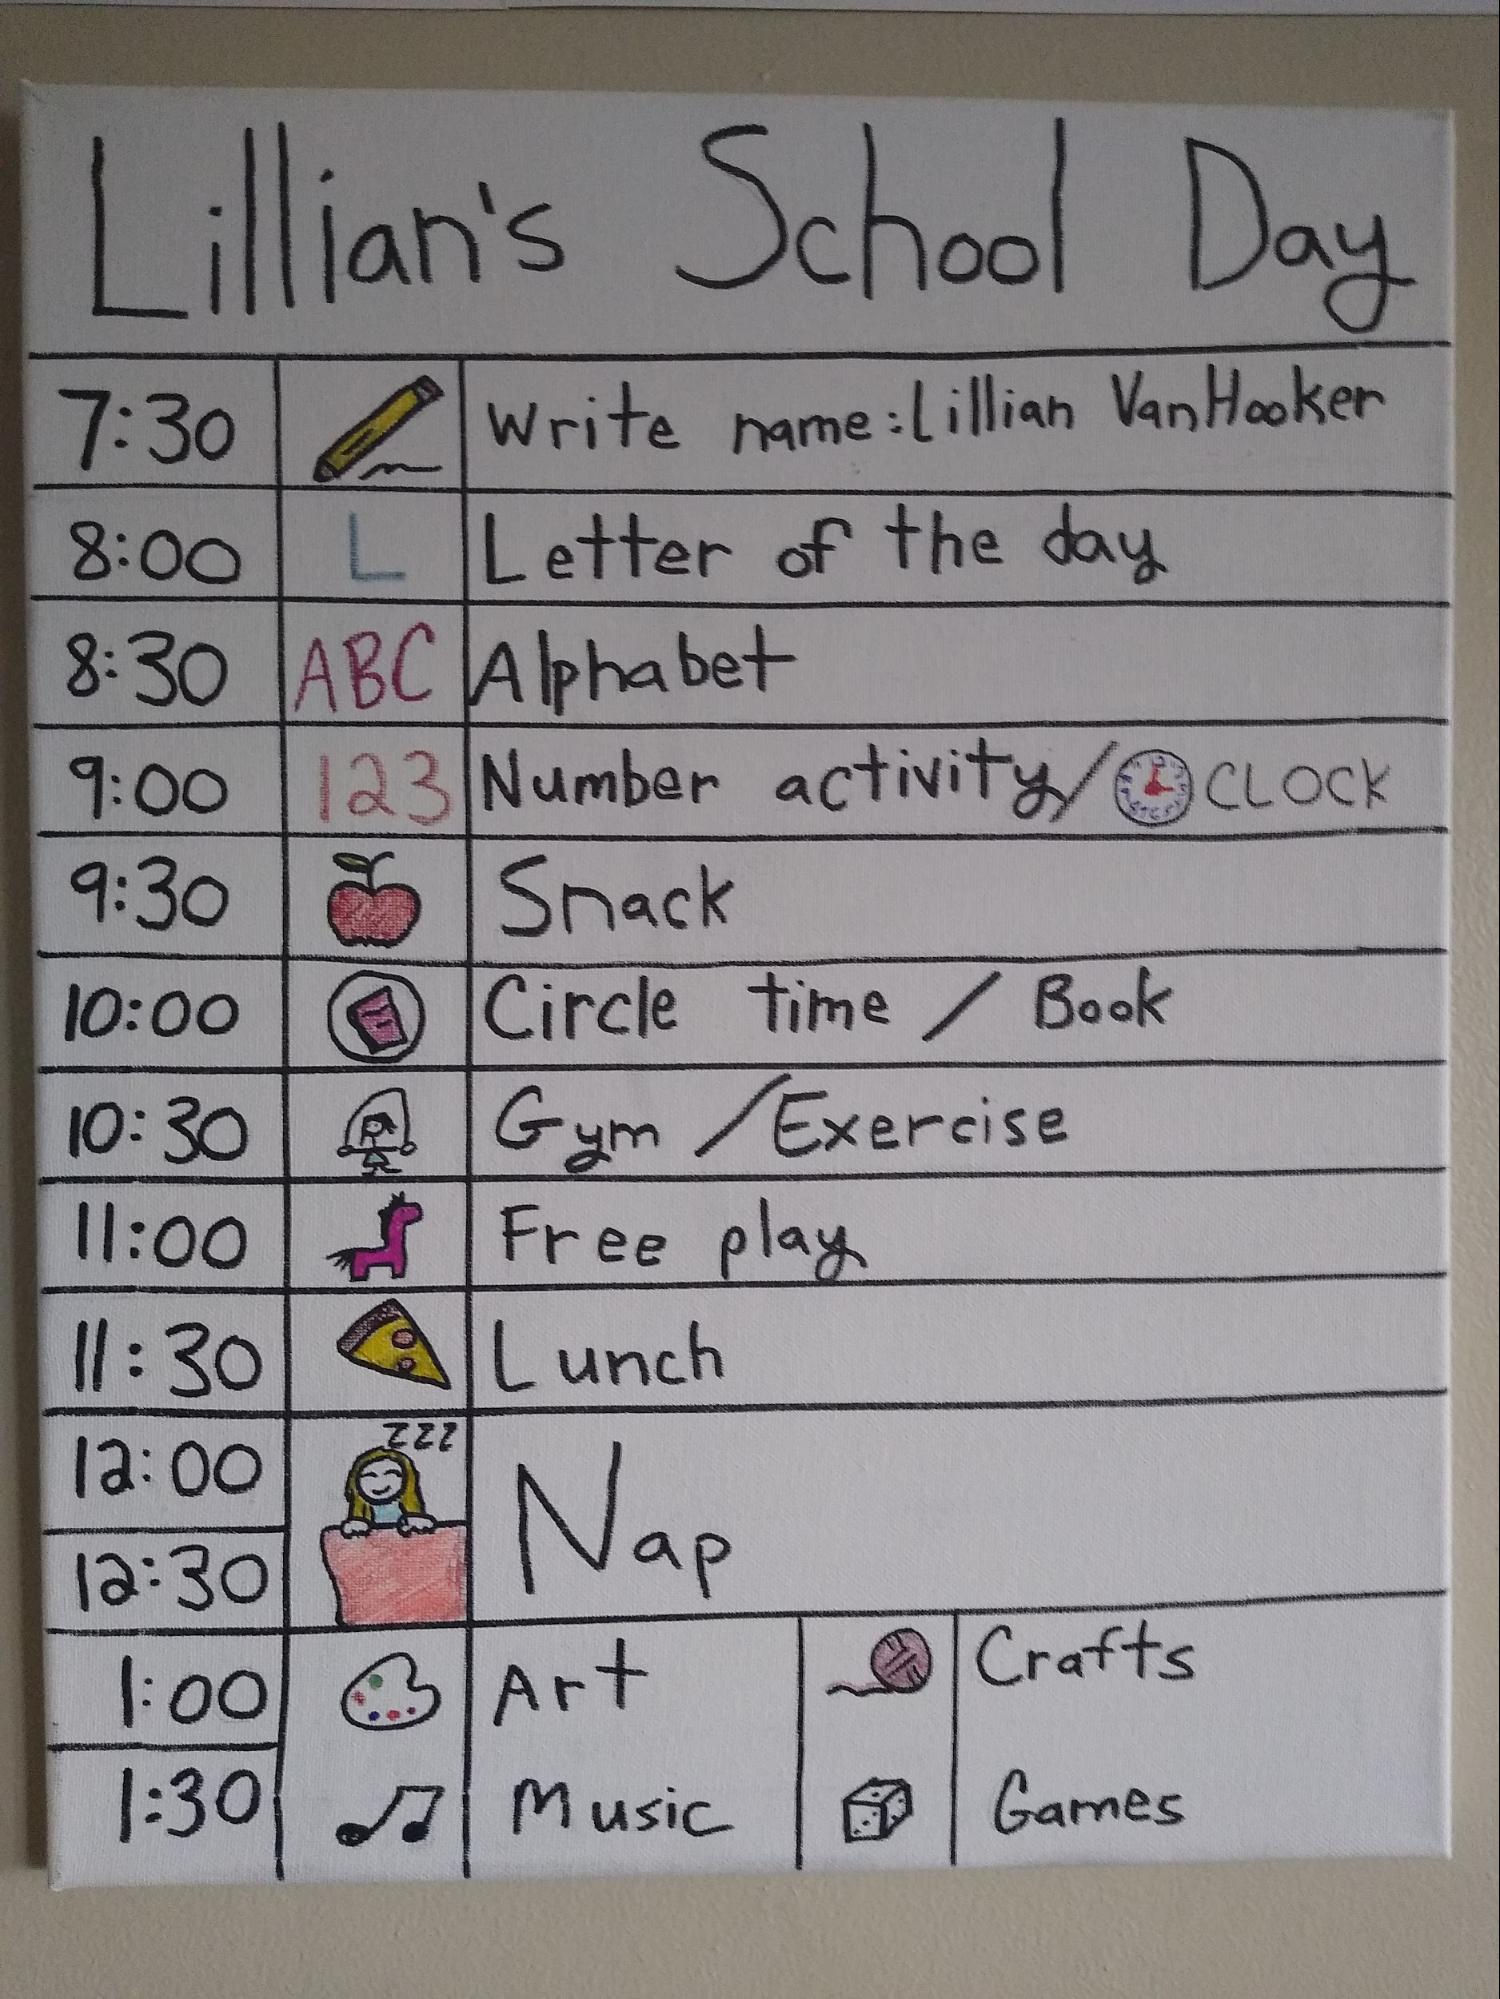 Lillian's School Day
7:30 Write name: Lillian VanHooker
8:00 L Letter of the day
8:30 ABC Alphabet
9:00 123 Number activity/ CLOCK
9:30 Snack
10:00 Circle time / Book
10:30 Gym / Exercise
11:00 Free play
11:30 Lunch
12:00 zzz
12:30 Nap
1:00 Art Crafts
1:30 Music Games